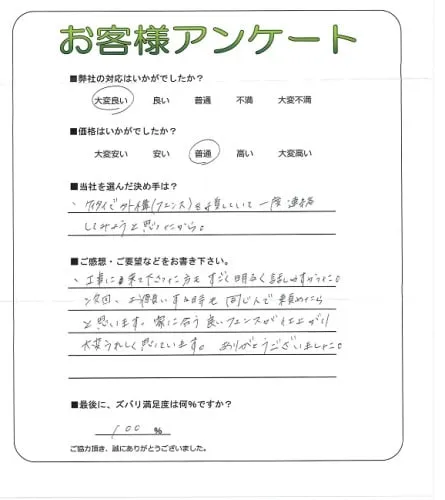 お客様アンケート
■弊社の対応はいかがでしたか？
大変良い 良い 普通 不満 大変不満
■価格はいかがでしたか？
大変安い 安い 普通 高い 大変高い
■当社を選んだ決め手は？
、ケイタイで外構(フェンス)を検索していて一度連絡
してみようと思ったから。
■ご感想・ご要望などをお書き下さい。
、工事に来て下さった方も すごく明るく話しやすかったです。
次回、お願いする時も 同じ人で 頼めたら
と思います。家に合う良いフェンスが仕上がり
大変うれしく思っています。ありがとうございました。
■最後に、ズバリ満足度は何％ですか？
100 ％
ご協力頂き、誠にありがとうございました。